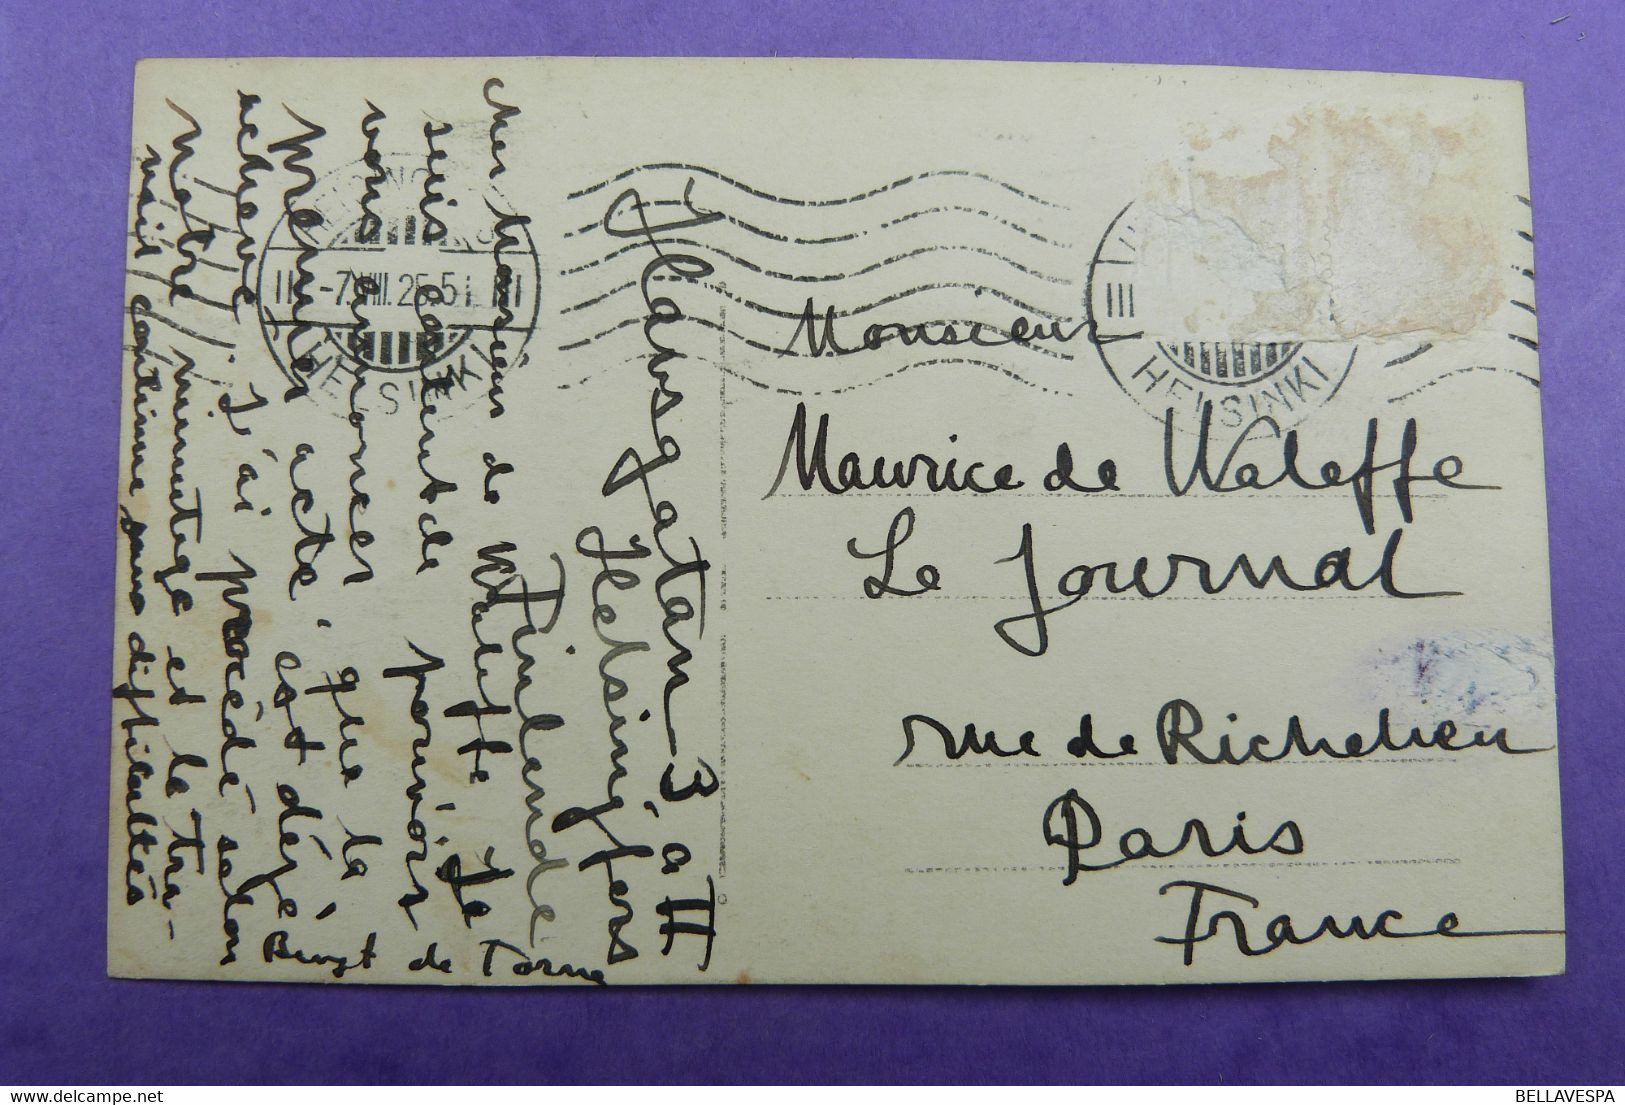 Havsgatan 3, a II
Helsingfors
Finlande
Cher Monsieur de Waleffe Je
suis content de pouvoir
vous annoncer que la
premier acte est déjé
acheve. J'ai procédé selon
Notre minutage et le tra-
vail continue sans difficultés
Bengt de Törne
HELSINKI
-7.VIII.25.5
HELSINKI
Monsieur
Maurice de Waleffe
Le Journal
rue de Richelieu
Paris
France
BELLAVESPA